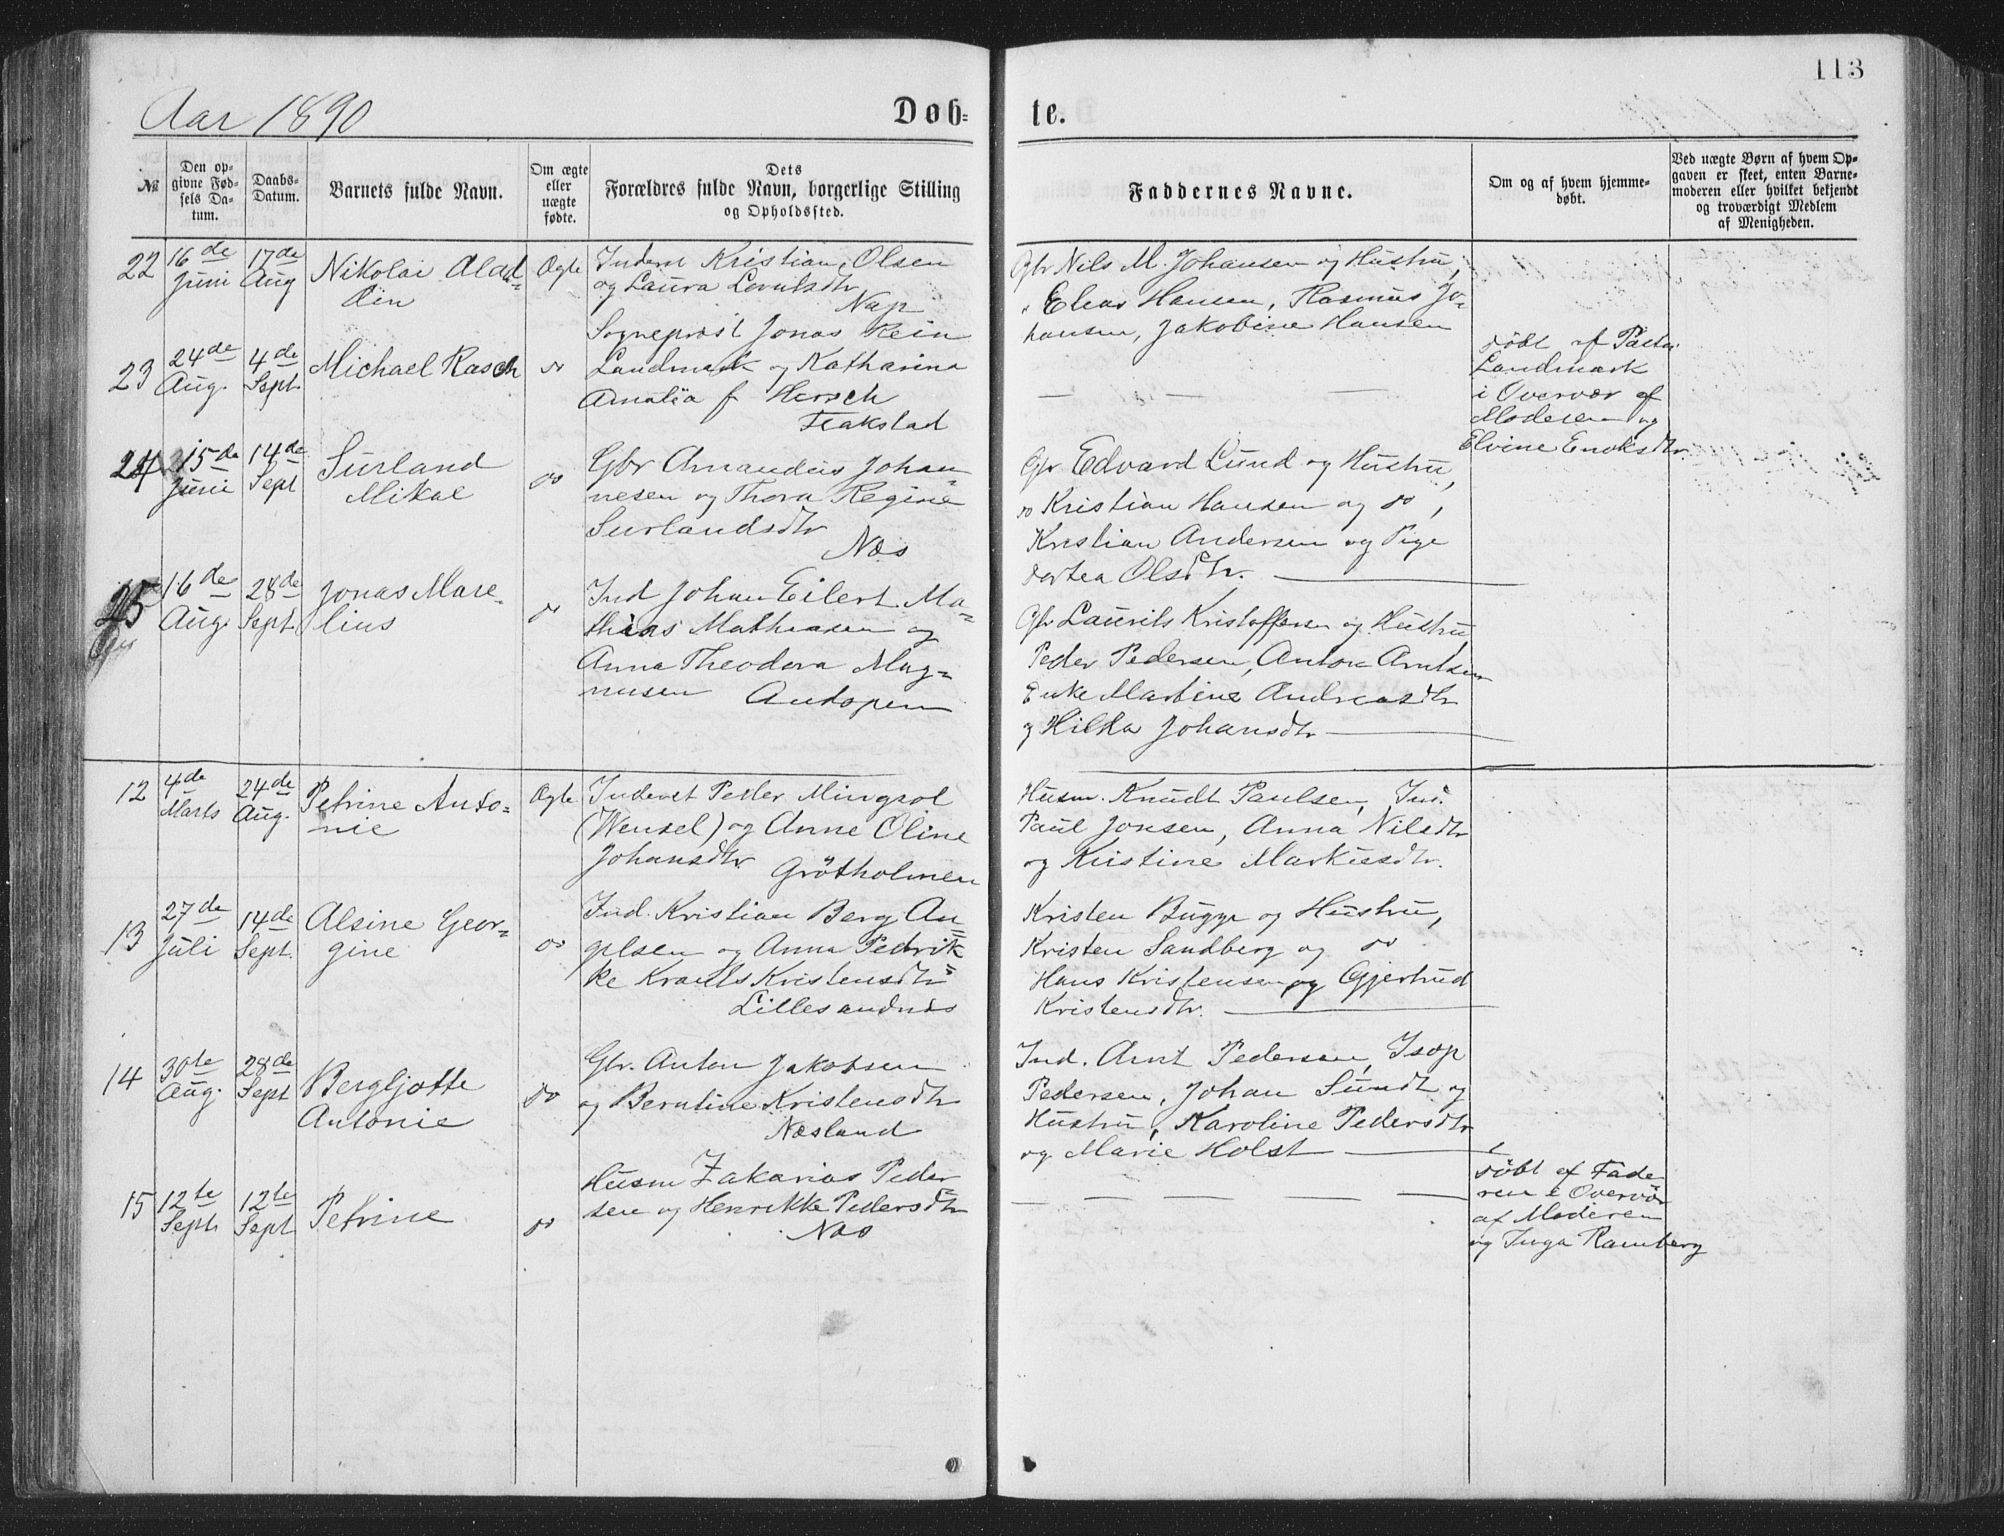 113
Aar 1890
Døb-
te.
№
Den op-
givne Fød-
sels Da-
tum.
Daabs-
Datum.
Barnets fulde Navn.
Om ægte
eller
uægte
fødte.
Dets
Forældres fulde Navn, borgerlige Stilling
og Opholdssted.
Faddernes Navne.
Om og af hvem hjemme-
døbt.
Ved uægte Børn af hvem Op-
gaven er skeet, enten Barne-
moderen eller hvilket bekjendt
og troværdigt Medlem
af Menigheden.
22
16de
Juni
17de
Aug
Nikolai Alad-
din
Ægte
Inderst Kristian Olsen
og Laura
Nap
Gbr Nils M. Johansen og Hustru,
Hansen, Rasmus Jo-
hansen, Jakobine Hansen
23
24de
Aug.
4de
Sept.
Michael Rasch
do
Sogneprest Jonas Rein
Landmark og Katharina
Amalia f. Hersch
Flakstad
døbt af Pastor
Landmark
i Overvær af
Moderen og
Elvine Enoksdtr.
24
15de
Juni
14de
Sept
Surland
Mikal
do
Gbr Amandus Johan-
nesen og Thora Regine
Surlandsdtr
Næs
Gbr Edvard Lund og Hustru,
do Kristian Hansen og do,
Kristian Andersen og Pige
Dortea Olsdtr.
25
16de
Aug.
28de
Sept.
Jonas Mare-
lius
do
Ind Johan Eilert Ma-
thias Mathiasen og
Anna Theodora Mag-
nusen
Andopen
Gbr Laurits Kristoffersen og Hustru
Peder Pedersen, Anton Arntsen
Enke Martine Andreasdtr
og Hilka Johansdtr
12
4de
Marts
24de
Aug.
Petrine Anto-
nie
Ægte
Inderst Peder Mingsol
(Wensel) og Anne Oline
Johansdtr
Grøtholmen
Husm. Knudt Paulsen, Ind.
Paul Jonsen, Anna Nilsdtr
og Kristine Markusdtr.
13
27de
Juli
14de
Sept.
Alsine Geor-
gine
do
Ind. Kristian Berg An-
gelsen og Anna Pedrik-
ke Krants Kristensdtr
Lillesandnæs
Kristen Bugge og Hustru,
Kristen Sandberg og do
Hans Kristensen og Gjertrud
Kristensdtr.
14
30te
Aug.
28de
Sept
Bergljotte
Antonie
do
Gbr. Anton Jakobsen
og Berntine Kristensdtr
Næsland
Ind. Arnt Pedersen, Isop
Pedersen, Johan Sundt og
Hustru, Karoline Pedersdtr
og Marie Holst
15
12te
Sept.
12te
Sept
Petrine
do
Husm Zakarias Peder
sen og Henrikke Pedersdtr
Næs
døbt af Fade
ren i Overvær
af Moderen
og Inga Ramberg